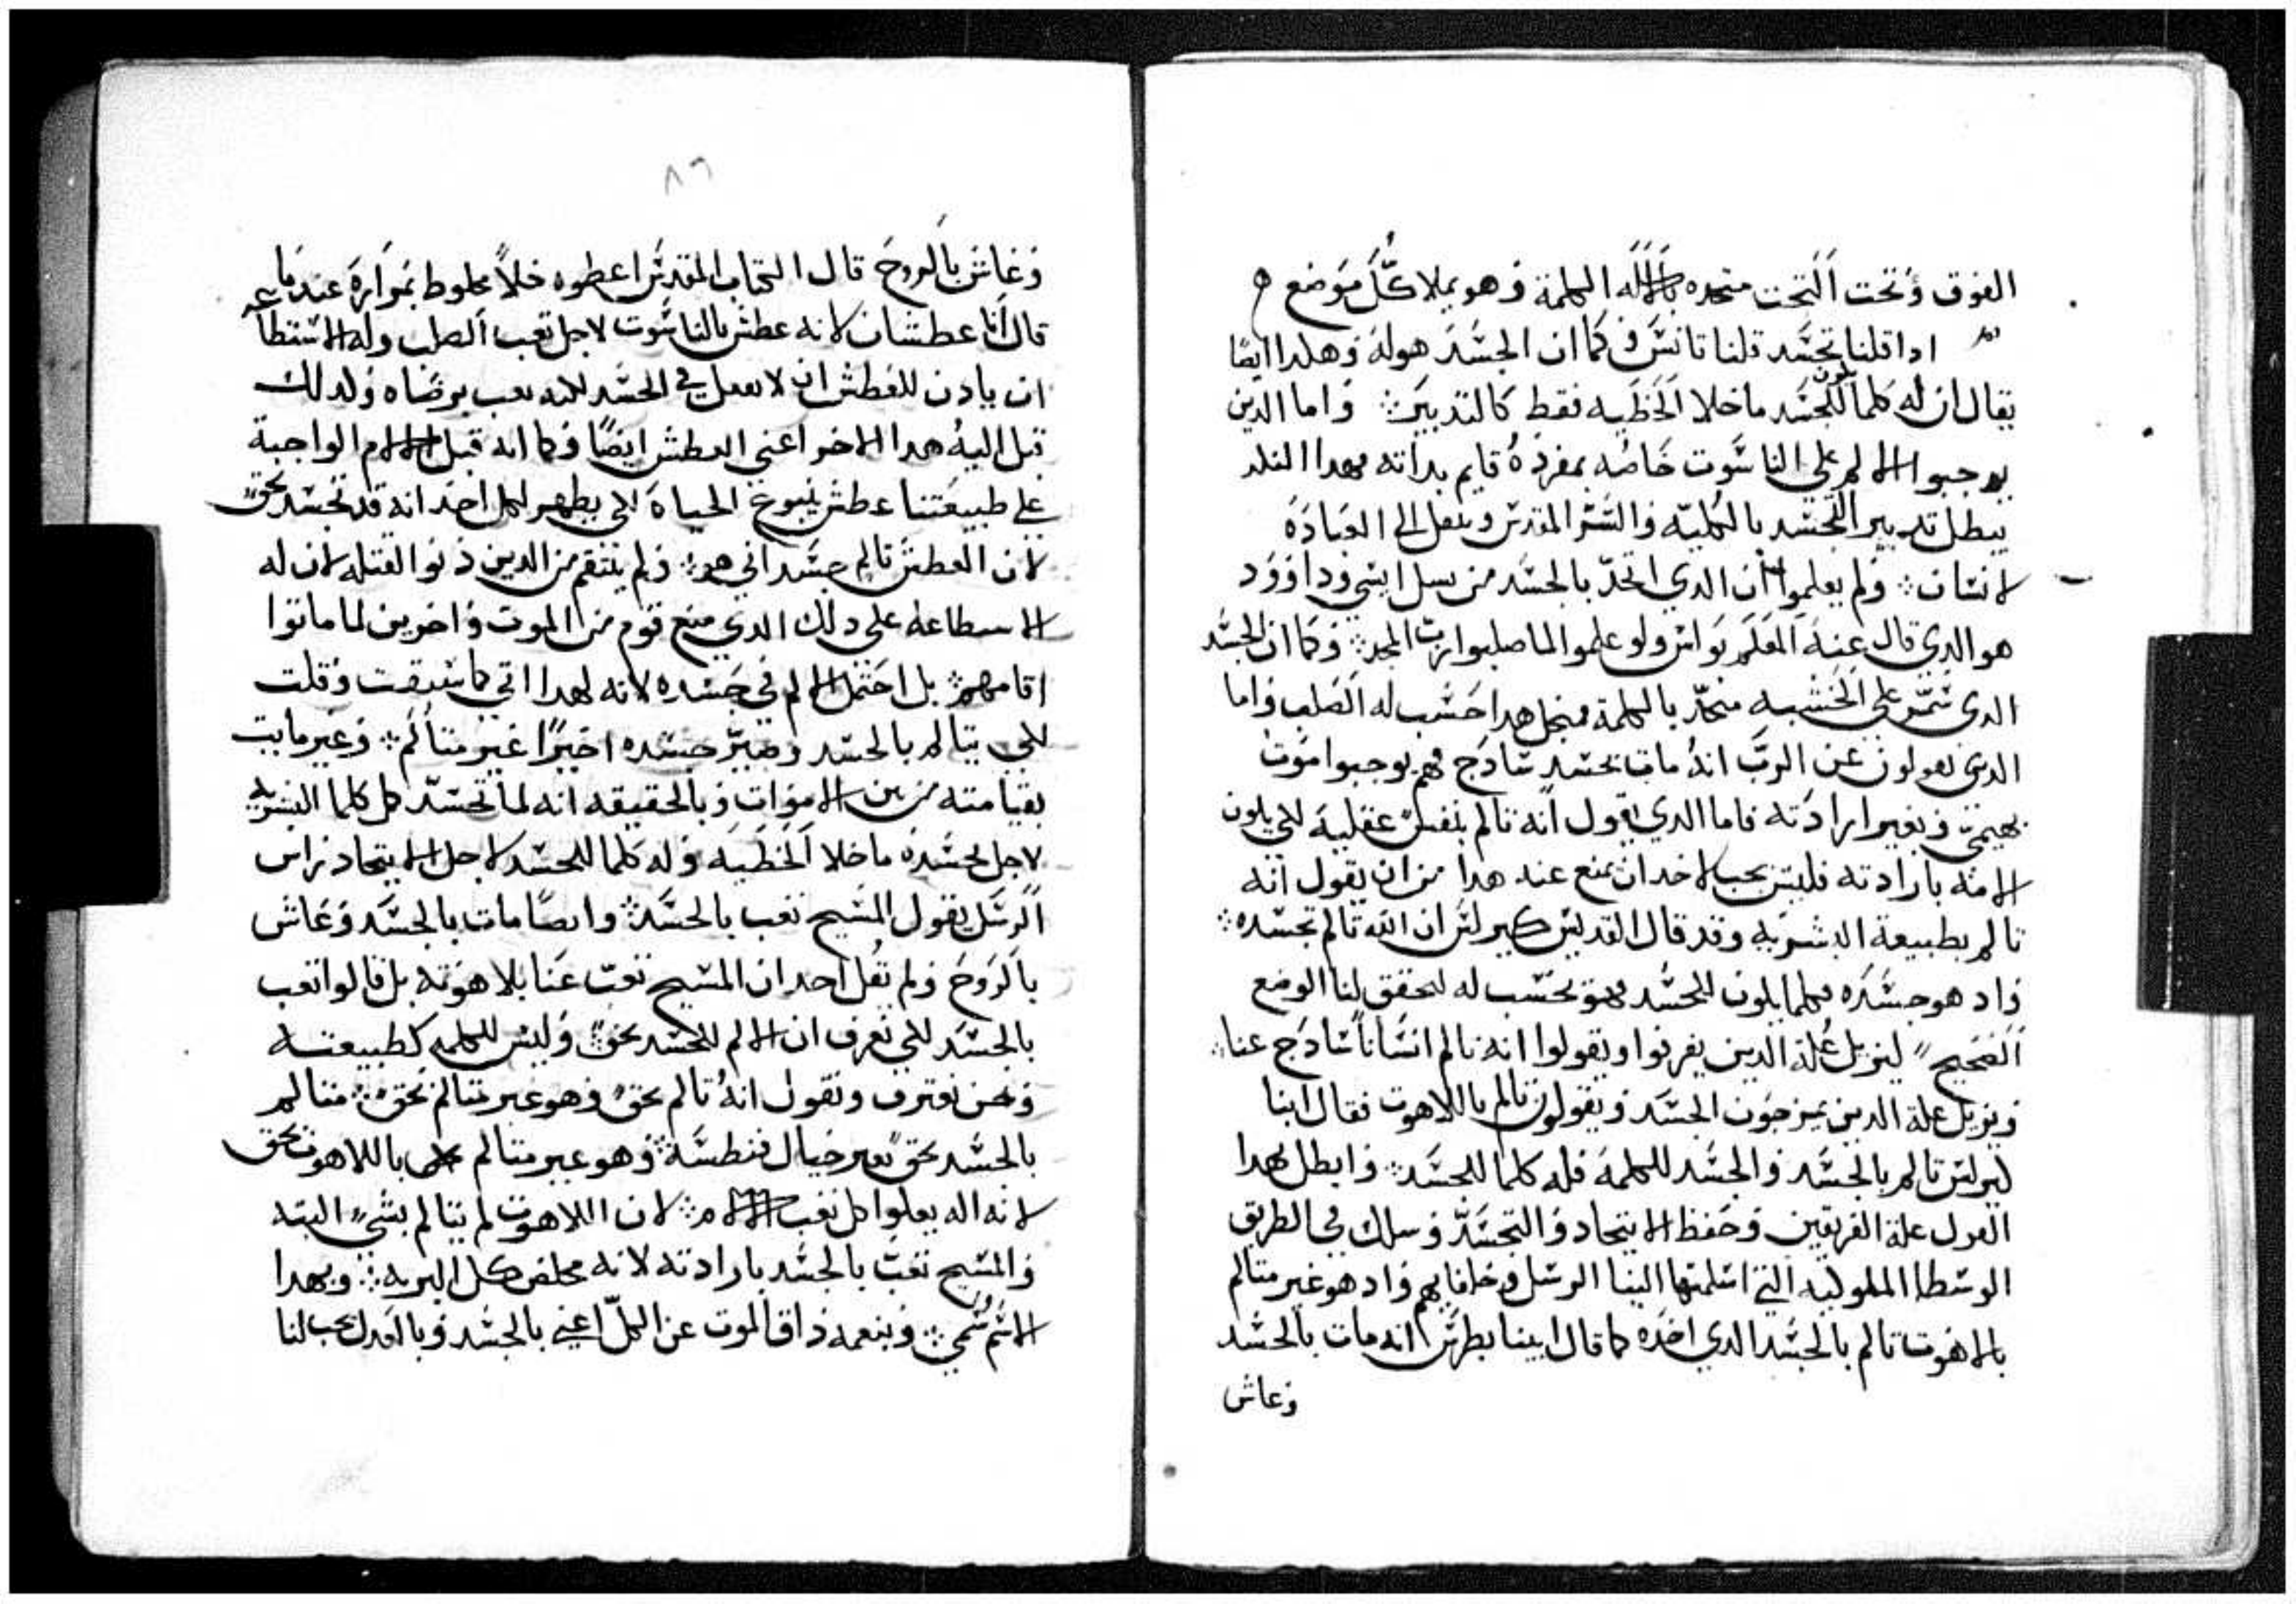 الفوق وتحت التحت متحده بالاله الكلمة وهو يملا كل موضع
ادا قلنا تجسد قلنا تانس وكما ان الجسد هو له وهكدا ايضا
يقال ان له كلما يكون للجسد ما خلا الخطيه فقط كالتدبير واما الدين
يوجبوا الالم على الناسوت خاصه بمفرده قايم بداته فهدا
يبطل تدبير التجسد بالكليه والسر المقدس وينقل الى العبادة
لانسان ولم يعلموا ان الدي اتحد بالجسد من نسل ايسي وداوود
هو الدي قال عنه المعلم بولس ولو علموا لما صلبوا رب المجد وكما ان الجسد
الدي سمر على الخشبه متحد بالكلمة فمنجل هدا حسب له الصلب واما
الدين يقولون عن الرب انه مات بجسد سادج فهم يوجبوا موت
بهيمي وبغير ارادته فاما الدي يقول انه تالم بنفس عقلية لكي يكون
الامه بارادته فليس يجب لاحد ان يمنع عند هدا من ان يقول انه
تالم بطبيعة البشريه وقد قال القديس كيرلس ان الله تالم بجسده
واد هو جسده فكلما يكون للجسد فهو يحسب له ليحقق لنا الوضع
الصحيح ليزيل علة الدين يفرقوا ويقولوا انه تالم انسانا سادج عنا
ويزيل علة الدين يمزجون الجسد ويقولون تالم باللاهوت فقال ابنا
كيرلس تالم بالجسد والجسد للكلمة فله كلما للجسد وابطل بهدا
القول علة الفريقين وحفظ الايتحاد والتجسد وسلك في الطريق
الوسطا الملوكيه التي اسلمتها الينا الرسل وخلفايهم واد هو غير متالم
بالاهوت تالم بالجسد الدي اخده كما قال ابينا بطرس انه مات بالجسد
وعاش
٨٦
وعاش بالروح قال الكتاب المقدس اعطوه خلا مخلوط بمرارة عندما
قال انا عطشان لانه عطش بالناسوت لاجل تعب الصلب وله الاستطاعه
ان يادن للعطش ان لا يفعل في الجسد لكنه تعب برضاه ولدلك
قبل اليه هدا الاخر اعني العطش ايضا وكما انه قبل الالام الواجبة
على طبيعتنا عطش ينبوع الحياة لكي يظهر لكل احد انه قد تجسد بحق
لان العطش تالم جسداني هو ولم ينتقم من الدين دنوا لقتله لان له
الاسطاعه على دلك الدي منع قوم من الموت واخرين لما ماتوا
اقامهم بل احتمل الالم في جسده لانه لهدا اتي كما سبقت وقلت
لكي يتالم بالجسد وصير جسده اخيرا غير متالم وغير مايت
بقيامته من بين الاموات وبالحقيقه انه لما تجسد كل كلما البشريه
لاجل تجسده ما خلا الخطيه وله كلما للجسد لاجل الايتحاد وراس
الرسل يقول المسيح تعب بالجسد وايضا مات بالجسد وعاش
بالروح ولم يقل احد ان المسيح تعب عنا بلاهوته بل قالوا تعب
بالجسد لكي نعرف ان الالم للجسد بحق وليس للكلمه كطبيعته
ونحن نعترف ونقول انه تالم بحق وهو غير متالم بحق متالم
بالجسد بحق بغير خيال فنطسه وهو غير متالم باللاهوت بحق
لانه اله يعلوا كل تعب الالام لان اللاهوت لم يتالم بشيء البته
والمسيح تعب بالجسد بارادته لانه مخلص كل البريه وبهدا
الاسم سمي وبنعمه داق الموت عن الكل اعني بالجسد وبالعدل يجب لنا